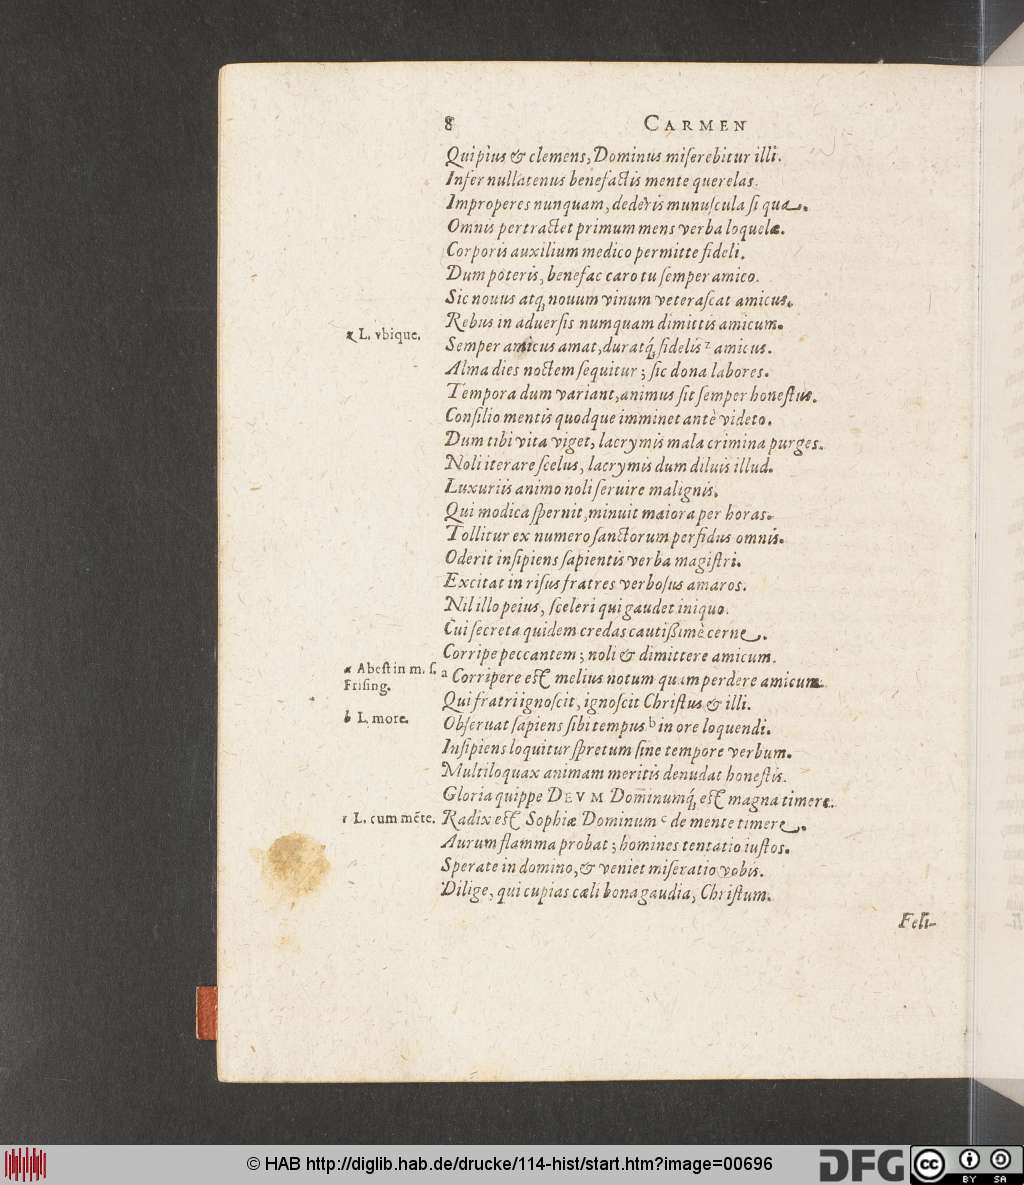 8 CARMEN
Qui pius & clemens, Dominus miſerebitur illi.
Infer nullatenus benefactis mente querelas.
Improperes nunquam, dederis munuſcula ſi qua.
Omnis pertractet primum mens verba loquelæ.
Corporis auxilium medico permitte fideli.
Dum poteris, benefac caro tu ſemper amico.
Sic nouus atq; nouum vinum veteraſcat amicus.
Rebus in aduerſis numquam dimittis amicum.
z L. vbique.
Semper amicus amat, duratq́; fidelis z amicus.
Alma dies noctem ſequitur; ſic dona labores.
Tempora dum variant, animus ſit ſemper honeſtus.
Conſilio mentis quodque imminet antè videto.
Dum tibi vita viget, lacrymis mala crimina purges.
Noli iterare ſcelus, lacrymis dum diluis illud.
Luxuriis animo noli ſeruire malignis.
Qui modica ſpernit, minuit maiora per horas.
Tollitur ex numero ſanctorum perfidus omnis.
Oderit inſipiens ſapientis verba magiſtri.
Excitat in riſus fratres verboſus amaros.
Nil illo peius, ſceleri qui gaudet iniquo.
Cui ſecreta quidem credas cautißimè cerne.
Corripe peccantem; noli & dimittere amicum.
a Abeſt in m. ſ.
Friſing.
a Corripere eſt melius notum quam perdere amicum.
Qui fratri ignoſcit, ignoſcit Chriſtus & illi.
b L. more.
Obſeruat ſapiens ſibi tempus b in ore loquendi.
Inſipiens loquitur ſpretum ſine tempore verbum.
Multiloquax animam meritis denudat honeſtis.
Gloria quippe DEVM Dominumq́; eſt magna timere.
c L. cum mẽte.
Radix eſt Sophiæ Dominum c de mente timere.
Aurum flamma probat; homines tentatio iuſtos.
Sperate in domino, & veniet miſeratio vobis.
Dilige, qui cupias cæli bona gaudia, Chriſtum.
Feli-
© HAB http://diglib.hab.de/drucke/114-hist/start.htm?image=00696
DFG cc BY SA